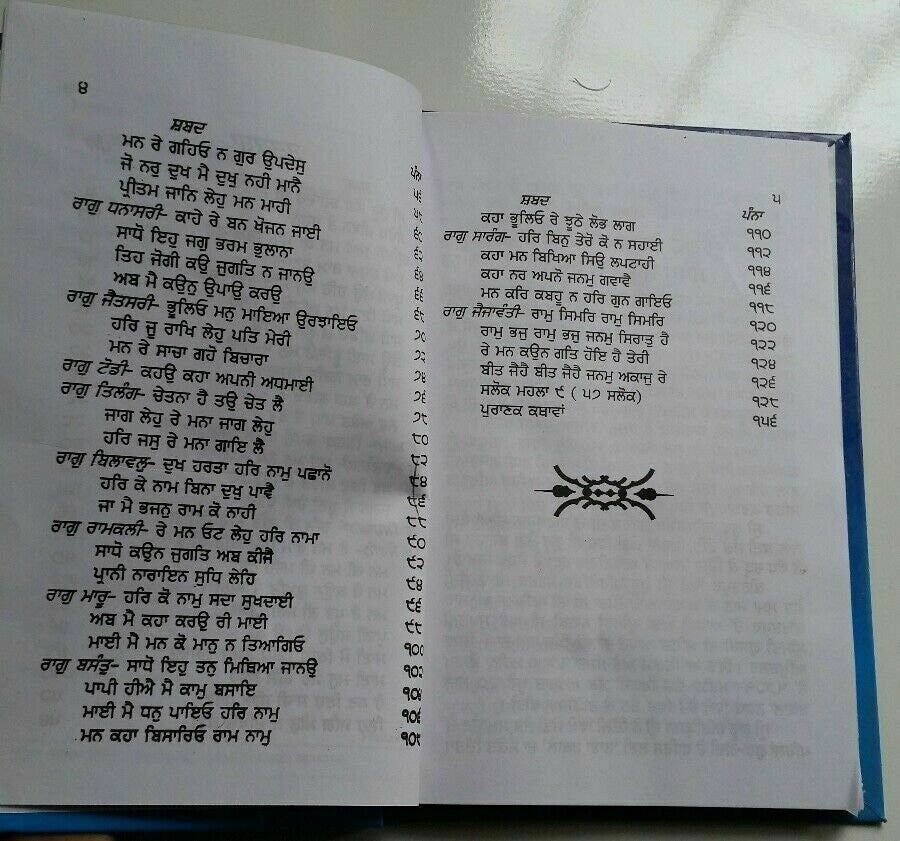 ੪
ਸ਼ਬਦ
ਪੰਨਾ
ਮਨ ਰੇ ਗਹਿਓ ਨ ਗੁਰ ਉਪਦੇਸੁ ੫੬
ਜੋ ਨਰੁ ਦੁਖ ਮੈ ਦੁਖੁ ਨਹੀ ਮਾਨੈ ੫੮
ਪ੍ਰੀਤਮ ਜਾਨਿ ਲੇਹੁ ਮਨ ਮਾਹੀ ੬੦
ਰਾਗੁ ਧਨਾਸਰੀ- ਕਾਹੇ ਰੇ ਬਨ ਖੋਜਨ ਜਾਈ ੬੨
ਸਾਧੋ ਇਹੁ ਜਗੁ ਭਰਮ ਭੁਲਾਨਾ ੬੪
ਤਿਹ ਜੋਗੀ ਕਉ ਜੁਗਤਿ ਨ ਜਾਨਉ ੬੬
ਅਬ ਮੈ ਕਉਨੁ ਉਪਾਉ ਕਰਉ ੬੮
ਰਾਗੁ ਜੈਤਸਰੀ- ਭੂਲਿਓ ਮਨੁ ਮਾਇਆ ਉਰਝਾਇਓ ੭੦
ਹਰਿ ਜੂ ਰਾਖਿ ਲੇਹੁ ਪਤਿ ਮੇਰੀ ੭੨
ਮਨ ਰੇ ਸਾਚਾ ਗਹੋ ਬਿਚਾਰਾ ੭੪
ਰਾਗੁ ਟੋਡੀ- ਕਹਉ ਕਹਾ ਅਪਨੀ ਅਧਮਾਈ ੭੬
ਰਾਗੁ ਤਿਲੰਗ- ਚੇਤਨਾ ਹੈ ਤਉ ਚੇਤ ਲੈ ੭੮
ਜਾਗ ਲੇਹੁ ਰੇ ਮਨਾ ਜਾਗ ਲੇਹੁ ੮੦
ਹਰਿ ਜਸੁ ਰੇ ਮਨਾ ਗਾਇ ਲੈ ੮੨
ਰਾਗੁ ਬਿਲਾਵਲੁ- ਦੁਖ ਹਰਤਾ ਹਰਿ ਨਾਮੁ ਪਛਾਨੋ ੮੪
ਹਰਿ ਕੇ ਨਾਮ ਬਿਨਾ ਦੁਖੁ ਪਾਵੈ ੮੬
ਜਾ ਮੈ ਭਜਨੁ ਰਾਮ ਕੋ ਨਾਹੀ ੮੮
ਰਾਗੁ ਰਾਮਕਲੀ- ਰੇ ਮਨ ਓਟ ਲੇਹੁ ਹਰਿ ਨਾਮਾ ੯੦
ਸਾਧੋ ਕਉਨ ਜੁਗਤਿ ਅਬ ਕੀਜੈ ੯੨
ਪ੍ਰਾਨੀ ਨਾਰਾਇਨ ਸੁਧਿ ਲੇਹਿ ੯੪
ਰਾਗੁ ਮਾਰੂ- ਹਰਿ ਕੋ ਨਾਮੁ ਸਦਾ ਸੁਖਦਾਈ ੯੬
ਅਬ ਮੈ ਕਹਾ ਕਰਉ ਰੀ ਮਾਈ ੯੮
ਮਾਈ ਮੈ ਮਨ ਕੋ ਮਾਨੁ ਨ ਤਿਆਗਿਓ ੧੦੦
ਰਾਗੁ ਬਸੰਤੁ- ਸਾਧੋ ਇਹੁ ਤਨੁ ਮਿਥਿਆ ਜਾਨਉ ੧੦੨
ਪਾਪੀ ਹੀਐ ਮੈ ਕਾਮੁ ਬਸਾਇ ੧੦੪
ਮਾਈ ਮੈ ਧਨੁ ਪਾਇਓ ਹਰਿ ਨਾਮੁ ੧੦੬
ਮਨ ਕਹਾ ਬਿਸਾਰਿਓ ਰਾਮ ਨਾਮੁ
੫
ਸ਼ਬਦ ਪੰਨਾ
ਕਹਾ ਭੂਲਿਓ ਰੇ ਝੂਠੇ ਲੋਭ ਲਾਗ ੧੧੦
ਰਾਗੁ ਸਾਰੰਗ- ਹਰਿ ਬਿਨੁ ਤੇਰੋ ਕੋ ਨ ਸਹਾਈ ੧੧੨
ਕਹਾ ਮਨ ਬਿਖਿਆ ਸਿਉ ਲਪਟਾਹੀ ੧੧੪
ਕਹਾ ਨਰ ਅਪਨੋ ਜਨਮੁ ਗਵਾਵੈ ੧੧੬
ਮਨ ਕਰਿ ਕਬਹੂ ਨ ਹਰਿ ਗੁਨ ਗਾਇਓ ੧੧੮
ਰਾਗੁ ਜੈਜਾਵੰਤੀ- ਰਾਮੁ ਸਿਮਰਿ ਰਾਮੁ ਸਿਮਰਿ ੧੨੦
ਰਾਮੁ ਭਜੁ ਰਾਮੁ ਭਜੁ ਜਨਮੁ ਸਿਰਾਤੁ ਹੈ ੧੨੨
ਰੇ ਮਨ ਕਉਨ ਗਤਿ ਹੋਇ ਹੈ ਤੇਰੀ ੧੨੪
ਬੀਤ ਜੈਹੈ ਬੀਤ ਜੈਹੈ ਜਨਮੁ ਅਕਾਜੁ ਰੇ ੧੨੬
ਸਲੋਕ ਮਹਲਾ ੯ ( ੫੭ ਸਲੋਕ) ੧੨੮
ਪੁਰਾਣਕ ਕਥਾਵਾਂ ੧੫੬